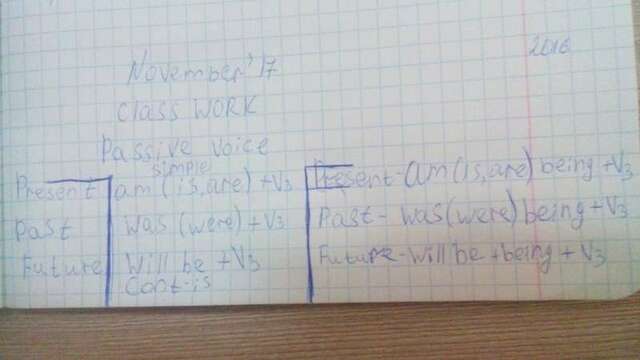 2016
November' 17
Class WORK
Passive voice
simple
Present am (is, are) + V3
Past was (were) + V3
Future will be + V3
Cont-is
Present - am (is, are) being + V3
Past - was (were) being + V3
Future - will be + being + V3